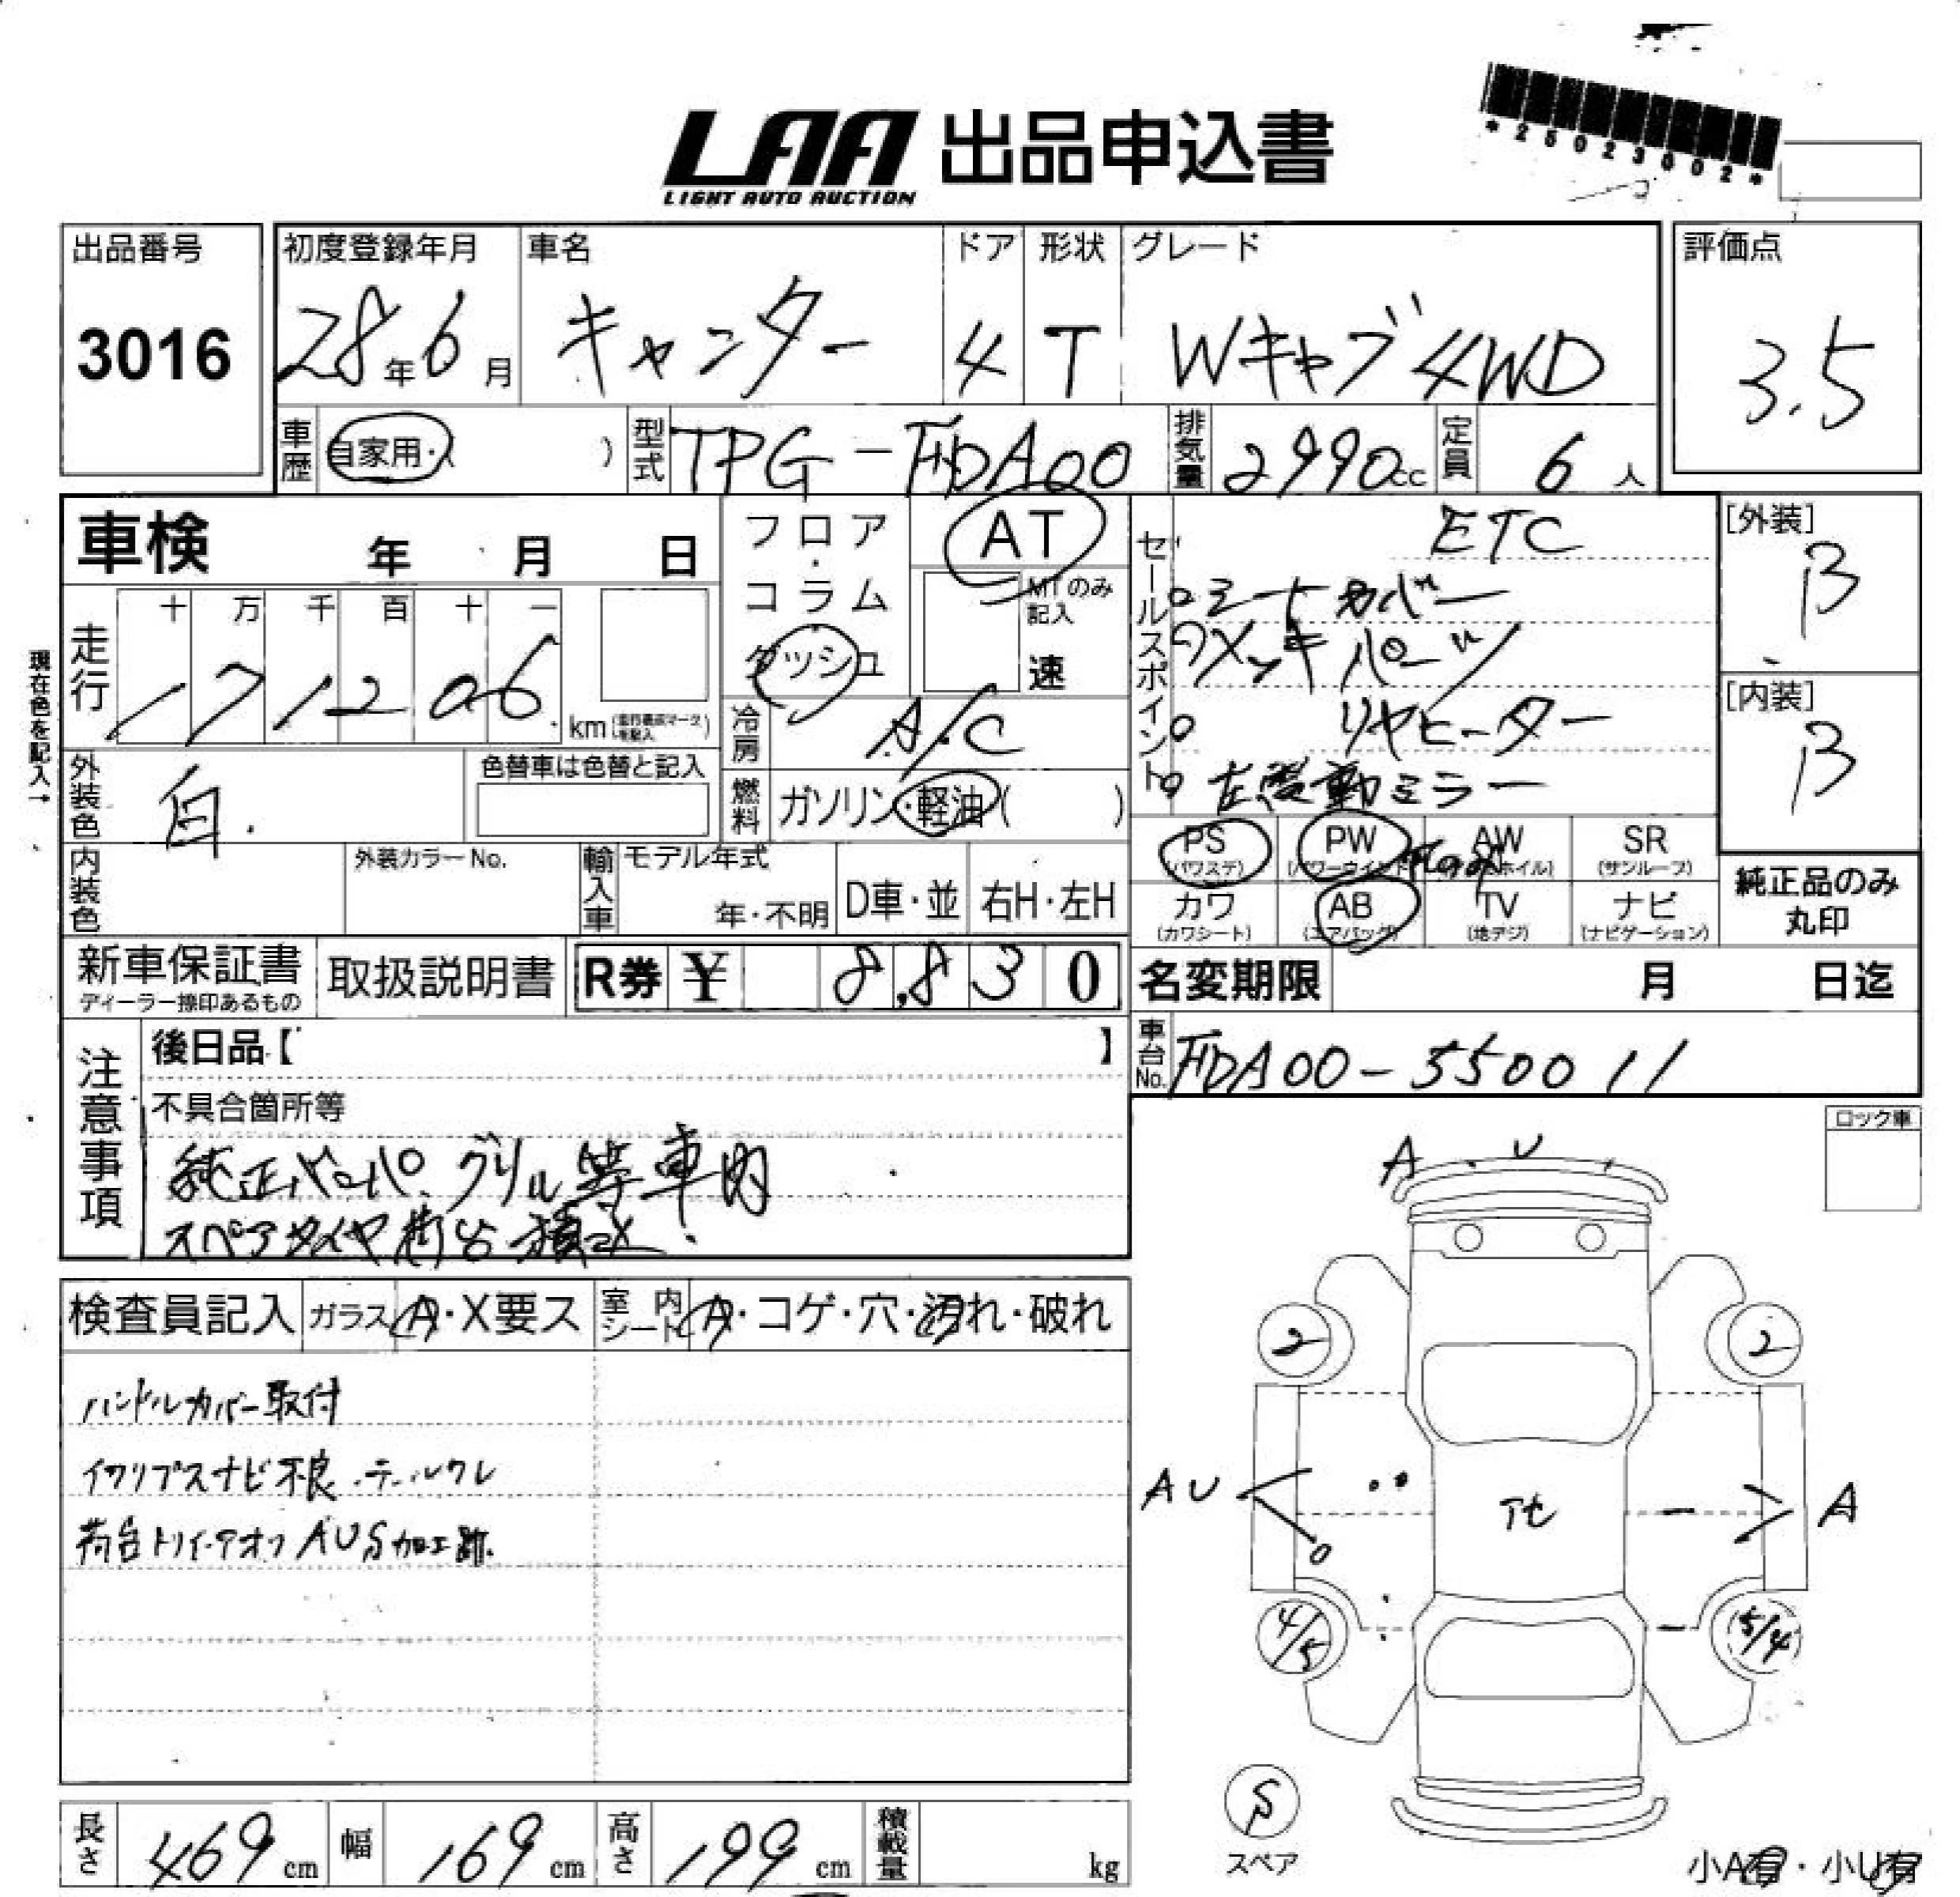 LAA 出品申込書
LIGHT AUTO AUCTION
*25023002*
出品番号
3016
初度登録年月
28年6月
車名
キャンター
ドア
4
形状
T
グレード
Wキャブ 4WD
評価点
3.5
車歴
自家用・( )
型式
TPG-FDA00
排気量
2990cc
定員
6人
車検 年 月 日
フロア・コラム
ダッシュ
AT
MTのみ記入
速
セールスポイント
ETC
シートカバー
メッキパーツ
リヤヒーター
左電動ミラー
[外装]
B
[内装]
B
現在色を記入→
走行
十 万 千 百 十 一
171206
km
冷房
A/C
外装色
白.
色替車は色替と記入
燃料
ガソリン・軽油( )
PS
(パワステ)
PW
AW
SR
(サンルーフ)
内装色
外装カラーNo.
輸入車
モデル年式
年・不明
D車・並
右H・左H
カワ
(カワシート)
AB
(エアバッグ)
TV
(地デジ)
ナビ
(ナビゲーション)
純正品のみ
丸印
新車保証書
ディーラー捺印あるもの
取扱説明書
R券 ¥ 8,830
名変期限 月 日迄
車台No.
FDA00-550011
注意事項
後日品【 】
不具合箇所等
純正 グリル等車内
スペアタイヤ荷台積込.
ロック車
A U
検査員記入
ガラス
A・X要ス
室内シート
A・コゲ・穴・汚れ・破れ
ハンドルカバー取付
イクリプスナビ不良 テールワレ
荷台トリイ AUS加工跡.
2
2
AU
A
4/5
5/4
S
スペア
長さ
469cm
幅
169cm
高さ
199cm
積載量
kg
小A有・小U有